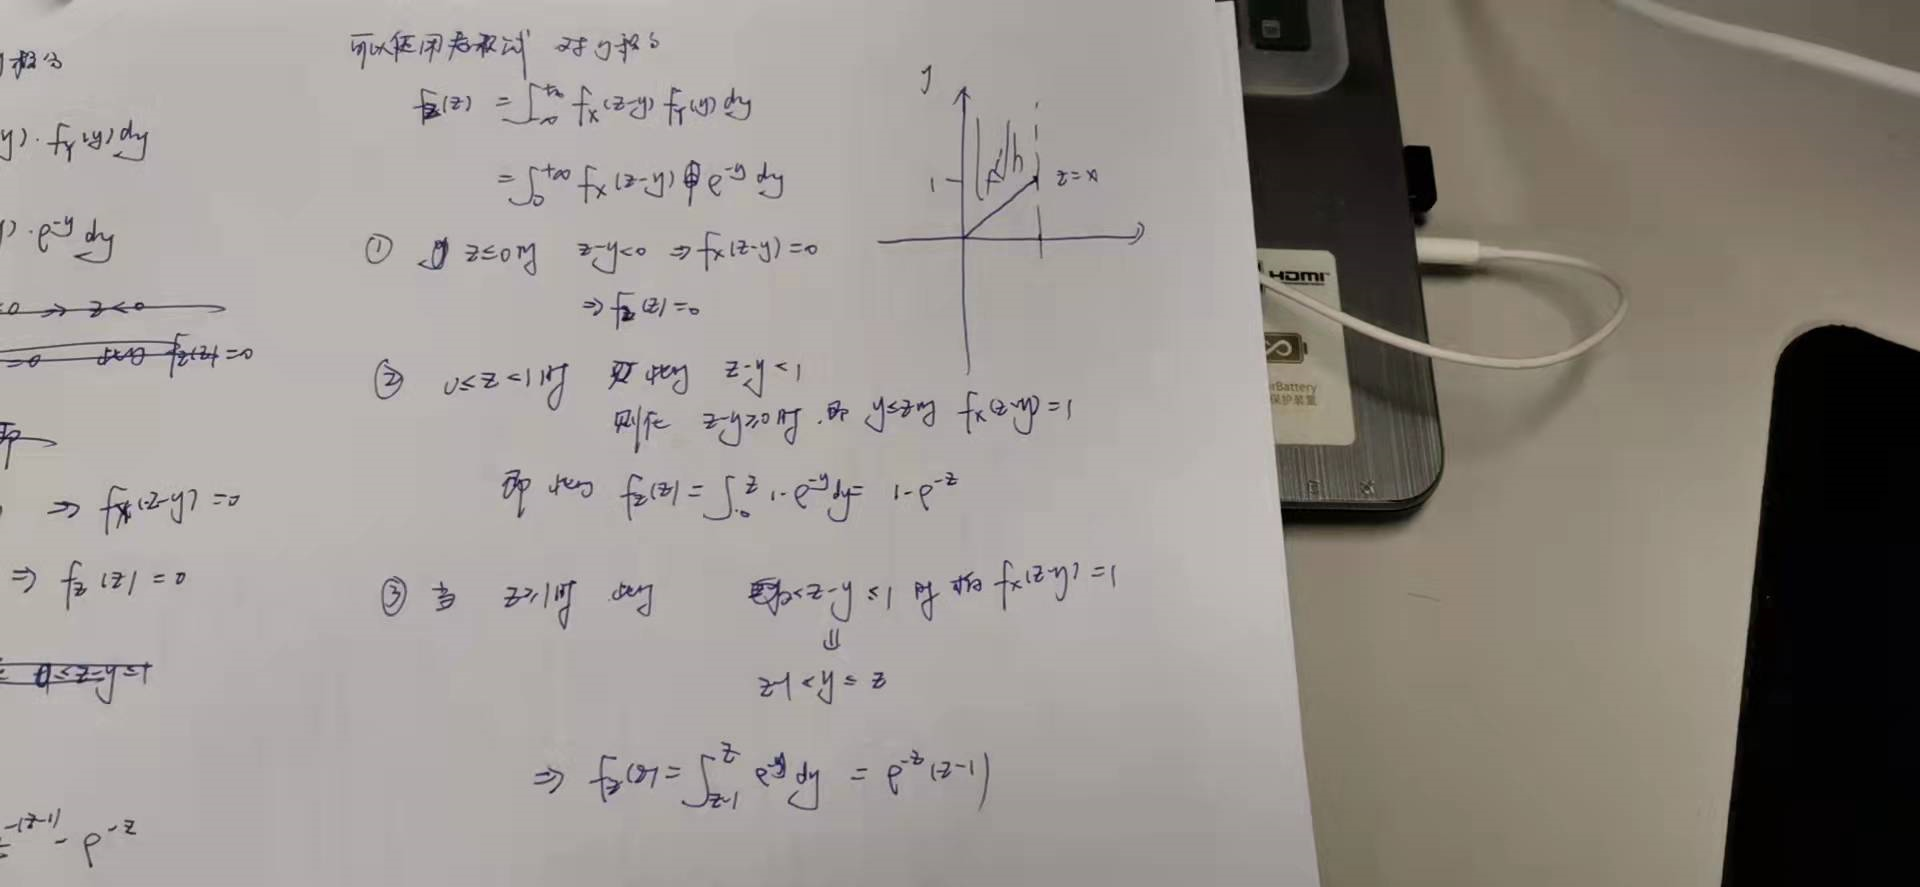 y) · f_Y(y) dy
) · e^{-y} dy
≤0 ⇒ z<0
=0 此时 f_Z(z)=0
即
⇒ f_X(z-y)=0
⇒ f_Z(z)=0
0≤z-y≤1
e^{-(z-1)} - e^{-z}
可以使用卷积 对y积分
f_Z(z) = ∫_{-∞}^{+∞} f_X(z-y) f_Y(y) dy
= ∫_0^{+∞} f_X(z-y) e^{-y} dy
① z≤0时 z-y<0 ⇒ f_X(z-y)=0
⇒ f_Z(z)=0
② 0≤z<1时 此时 z-y<1
则 z-y≥0时. 即 y≤z时 f_X(z-y)=1
即此时 f_Z(z) = ∫_0^z 1·e^{-y} dy = 1-e^{-z}
③ 当 z≥1时 此时 0<z-y≤1 时 f_X(z-y)=1
⇓
z-1<y≤z
⇒ f_Z(z) = ∫_{z-1}^z e^{-y} dy = e^{-z}(z-1)
y
1
z=x
HDMI
rBattery
保护装置